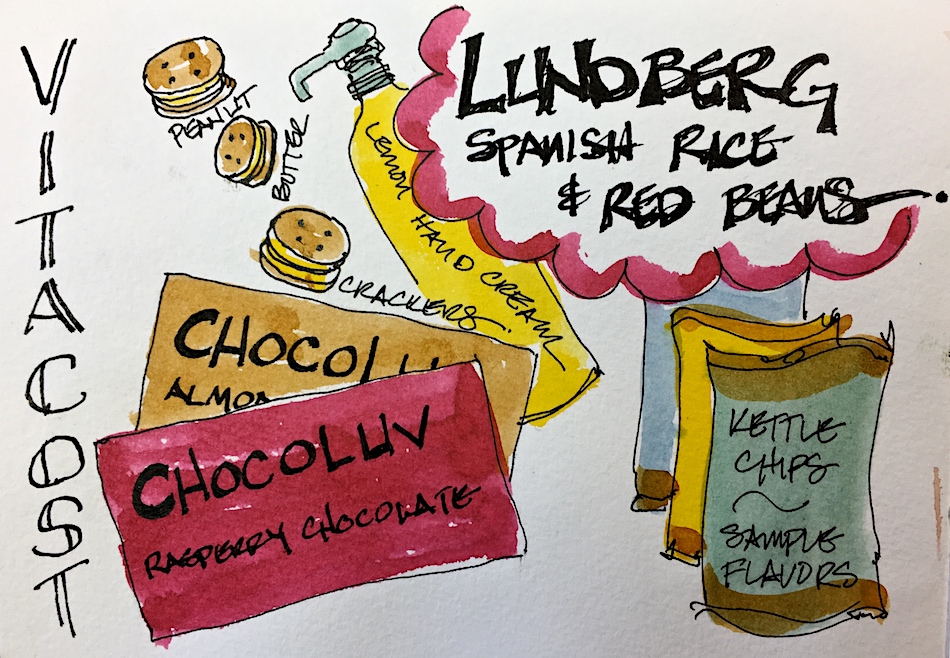 VITACOST
PEANUT
BUTTER
CRACKERS.
LEMON HAND CREAM
LUNDBERG
SPANISH RICE
& RED BEANS.
CHOCOLUV
ALMO
CHOCOLUV
RASPBERRY CHOCOLATE
KETTLE
CHIPS
~
SAMPLE
FLAVORS